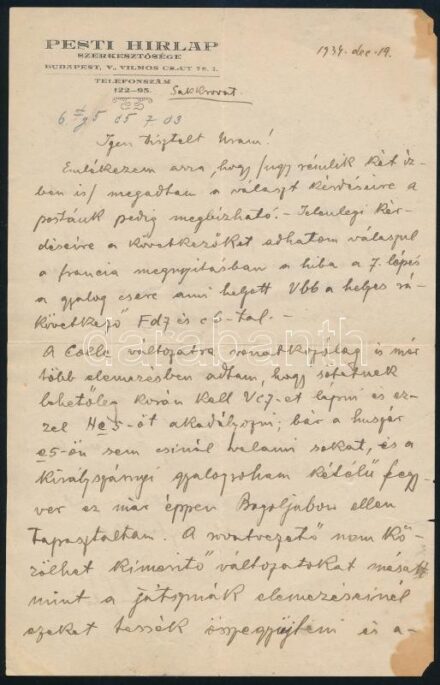 PESTI HIRLAP
SZERKESZTŐSÉGE
BUDAPEST, V., VILMOS CS.-UT 78. I.
TELEFONSZÁM
122–95.
1934. dec. 19.
Sakkrovat.
Igen tisztelt Uram!
Emlékezem arra, hogy /ugy rémlik két íz-
ben is/ megadtam a választ kérdéseire a
postánk pedig megbizható. – Jelenlegi kér-
déseire a következőket adhatom válaszul
a francia megnyitásban a hiba a 7. lépés
a gyalog csere ami helyett Vb6 a helyes rá-
következő Fd7 és c5-tal. –
A Colle változatra vonatkozólag is már
több elemzésben adtam, hogy sötétnek
lehetőleg korán kell Vc7-et lépni és ez-
zel He5-öt akadályozni; bár a huszár
e5-ön sem csinál valami sokat, és a
királyszárnyi gyalogroham kétélű fegy-
ver ez már éppen Bogoljubow ellen
tapasztaltam. A rovatvezető nem kö-
zölhet kimerítő változatokat másutt
mint a játszmák elemzéseinél
ezeket tessék összegyűjteni és a-
darabanth